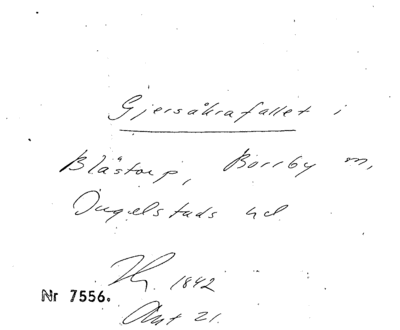 Gjersåkrafallet i
Blästorp, Borrby m,
Ingelstads hd
1842
Nr 7556.
Ant 21.